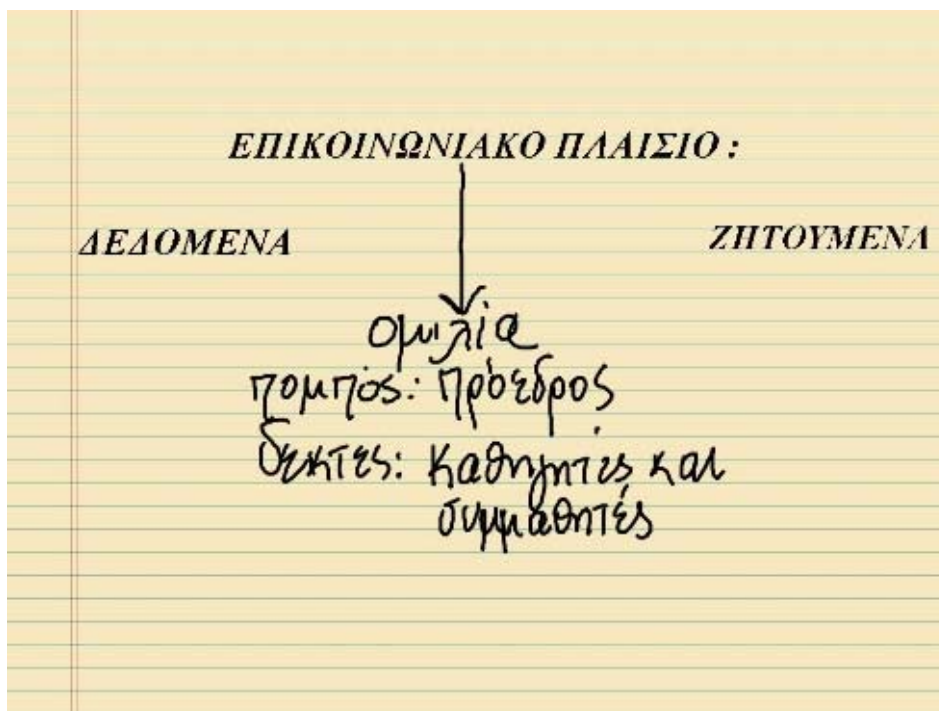 ΕΠΙΚΟΙΝΩΝΙΑΚΟ ΠΛΑΙΣΙΟ :
ΔΕΔΟΜΕΝΑ ΖΗΤΟΥΜΕΝΑ
ομιλία
πομπός: πρόεδρος
δέκτες: καθηγητές και
συμμαθητές